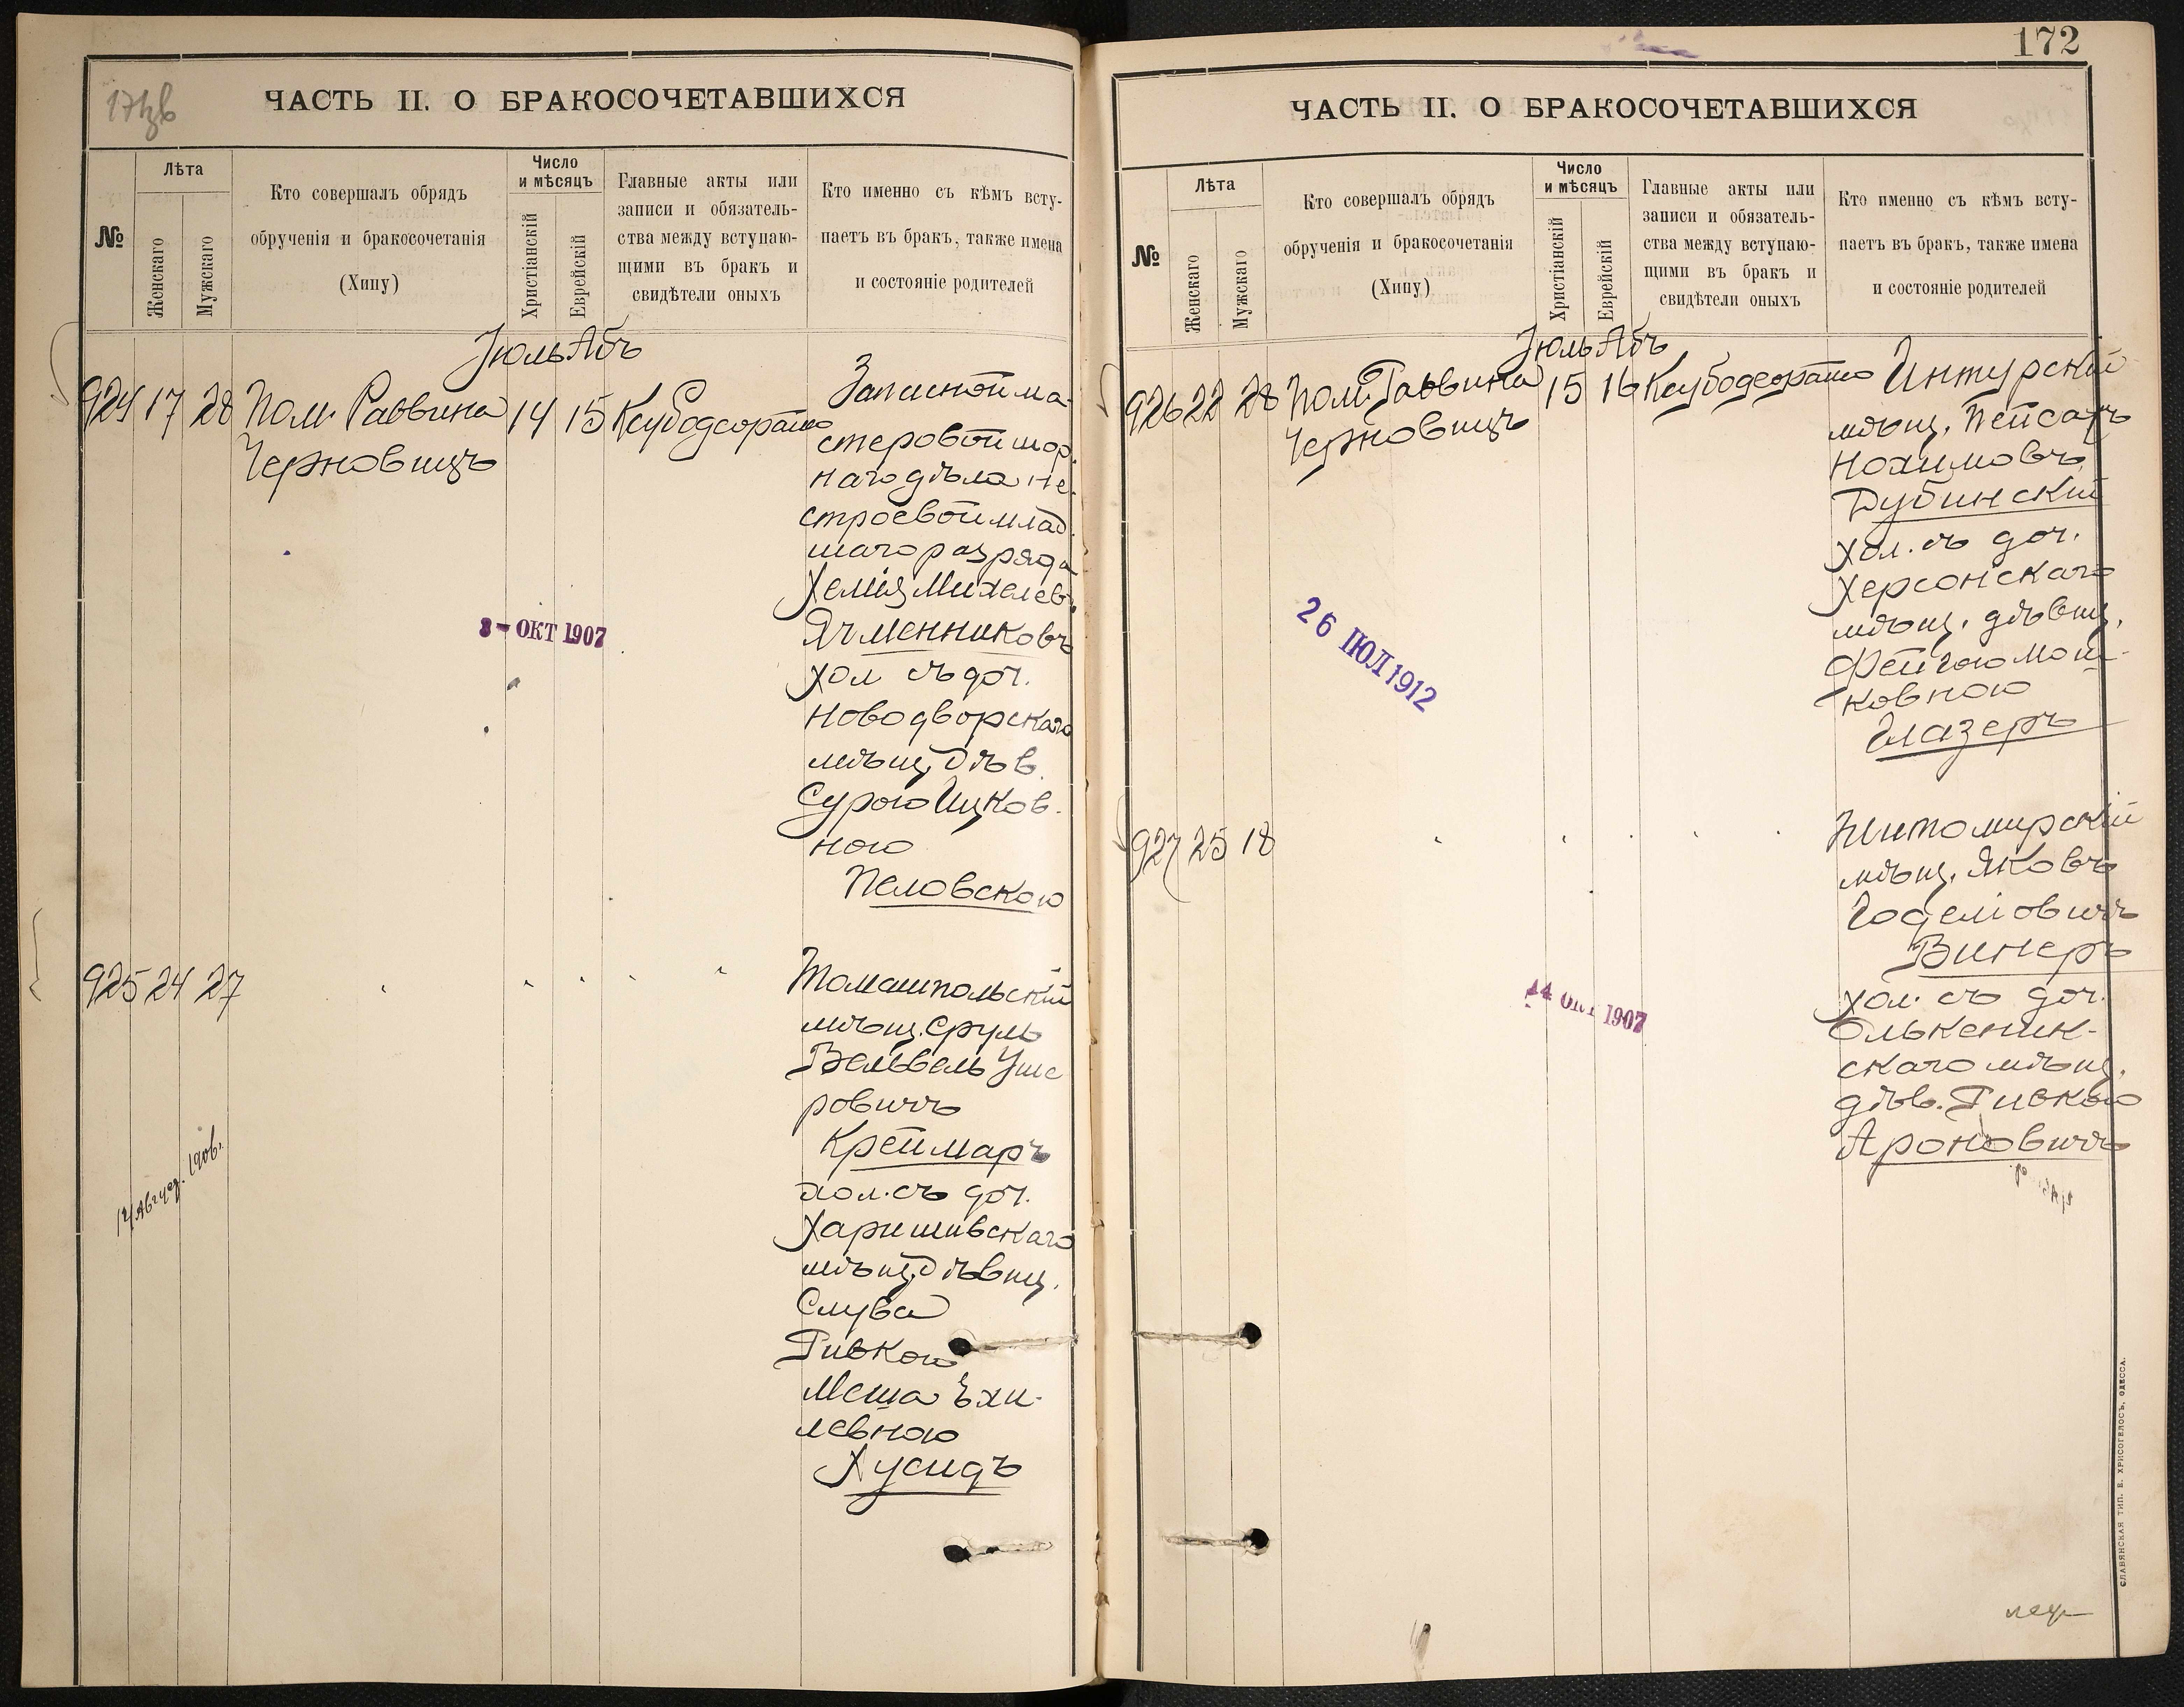 ЧАСТЬ II. О БРАКОСОЧЕТАВШИХСЯ
№
Лѣта
Женскаго
Мужскаго
Кто совершалъ обрядъ
обрученія и бракосочетанія
(Хипу)
Число
и мѣсяцъ
Христіанскій
Еврейскій
Главные акты или
записи и обязатель-
ства между вступаю-
щими въ бракъ и
свидѣтели оныхъ
Кто именно съ кѣмъ всту-
паетъ въ бракъ, также имена
и состояніе родителей
Іюль Абъ
924 17 28 Пом. Раввина 14 15
Черновицъ
Запасной ма-
стеровой шор-
наго дѣла не-
строевой млад.
шаго разряда
Михелев.
Ячменниковъ
хол съ доч.
Новодворскаго
мѣщ. дѣв.
Сурою Ицков-
ною
Пеловскою
3 - ОКТ 1907
925 24 27 " " " " "
Томашпольскій
мѣщ. Сруль
Вельвель Уше
ровичъ
Креймаръ
хол. съ доч.
мѣщ. дѣвиц.
Ривкою
левною
Хусидъ
1906.
172
ЧАСТЬ II. О БРАКОСОЧЕТАВШИХСЯ
№
Лѣта
Женскаго
Мужскаго
Кто совершалъ обрядъ
обрученія и бракосочетанія
(Хипу)
Число
и мѣсяцъ
Христіанскій
Еврейскій
Главные акты или
записи и обязатель-
ства между вступаю-
щими въ бракъ и
свидѣтели оныхъ
Кто именно съ кѣмъ всту-
паетъ въ бракъ, также имена
и состояніе родителей
Іюль Абъ
926 22 28 Пом. Раввина 15 16
Черновицъ
Интурскій
мѣщ. Пейсахъ
Нохимовъ
Дубинскій
хол. съ доч.
Херсонскаго
мѣщ. дѣвиц.
Фейгою Мош-
ковною
Глазеръ
26 ІЮЛ 1912
927 25 18 " " " " "
Житомирскій
мѣщ. Яковъ
Годеліовичъ
Винеръ
хол. съ доч.
Олькеник-
скаго мѣщ.
дѣв. Ривкою
Ароновичъ
14 ОКТ 1907
СЛАВЯНСКАЯ ТИП. Е. ХРИСОГЕЛОСЪ, ОДЕССА.